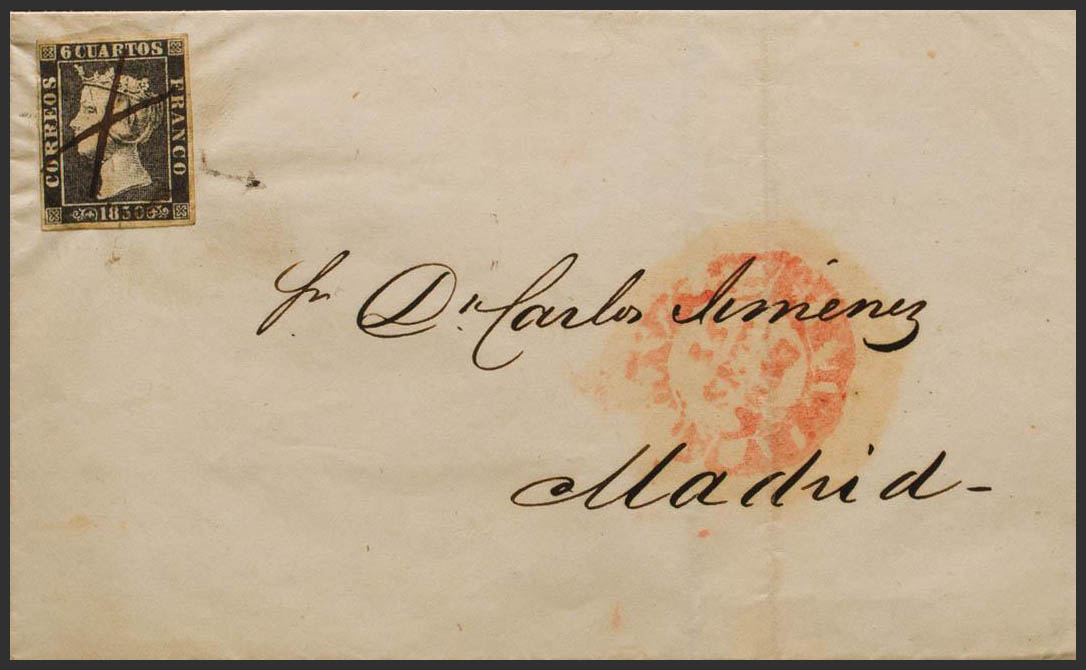 6 CUARTOS
CORREOS
FRANCO
1850
Sr. Dn. Carlos Jiménez
Madrid-